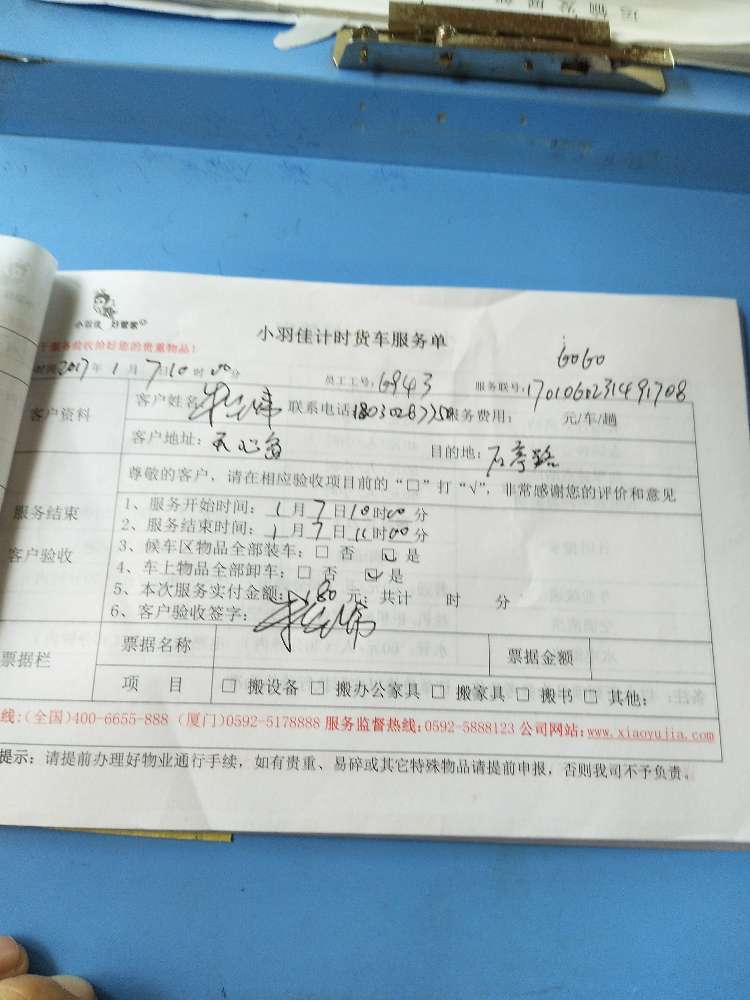 小羽佳 好管家
小羽佳计时货车服务单
服务验收给好您的贵重物品!
6060
时间2017年1月7日10时00分
员工工号:6943
服务联号:1701060231491708
客户资料
客户姓名
联系电话
服务费用: 元/车/趟
客户地址:天心岛
目的地:石亭路
尊敬的客户,请在相应验收项目前的“□”打“√”,非常感谢您的评价和意见
服务结束
客户验收
1、服务开始时间:1月7日10时00分
2、服务结束时间:1月7日11时00分
3、候车区物品全部装车:□ 否 ☑ 是
4、车上物品全部卸车:□ 否 ☑ 是
5、本次服务实付金额:180元,共计 时 分
6、客户验收签字:
票据栏
票据名称
票据金额
项 目
□ 搬设备 □ 搬办公家具 □ 搬家具 □ 搬书 □ 其他:
线:(全国)400-6655-888 (厦门)0592-5178888 服务监督热线:0592-5888123 公司网站:www.xiaoyujia.com
提示:请提前办理好物业通行手续,如有贵重、易碎或其它特殊物品请提前申报,否则我司不予负责。